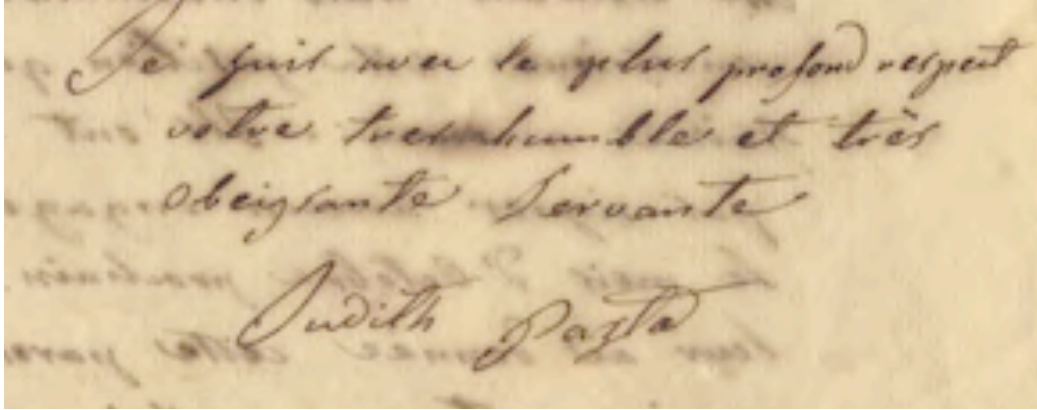 Je suis avec le plus profond respect
votre tres humble et très
obeissante Servante
Judith Pasta